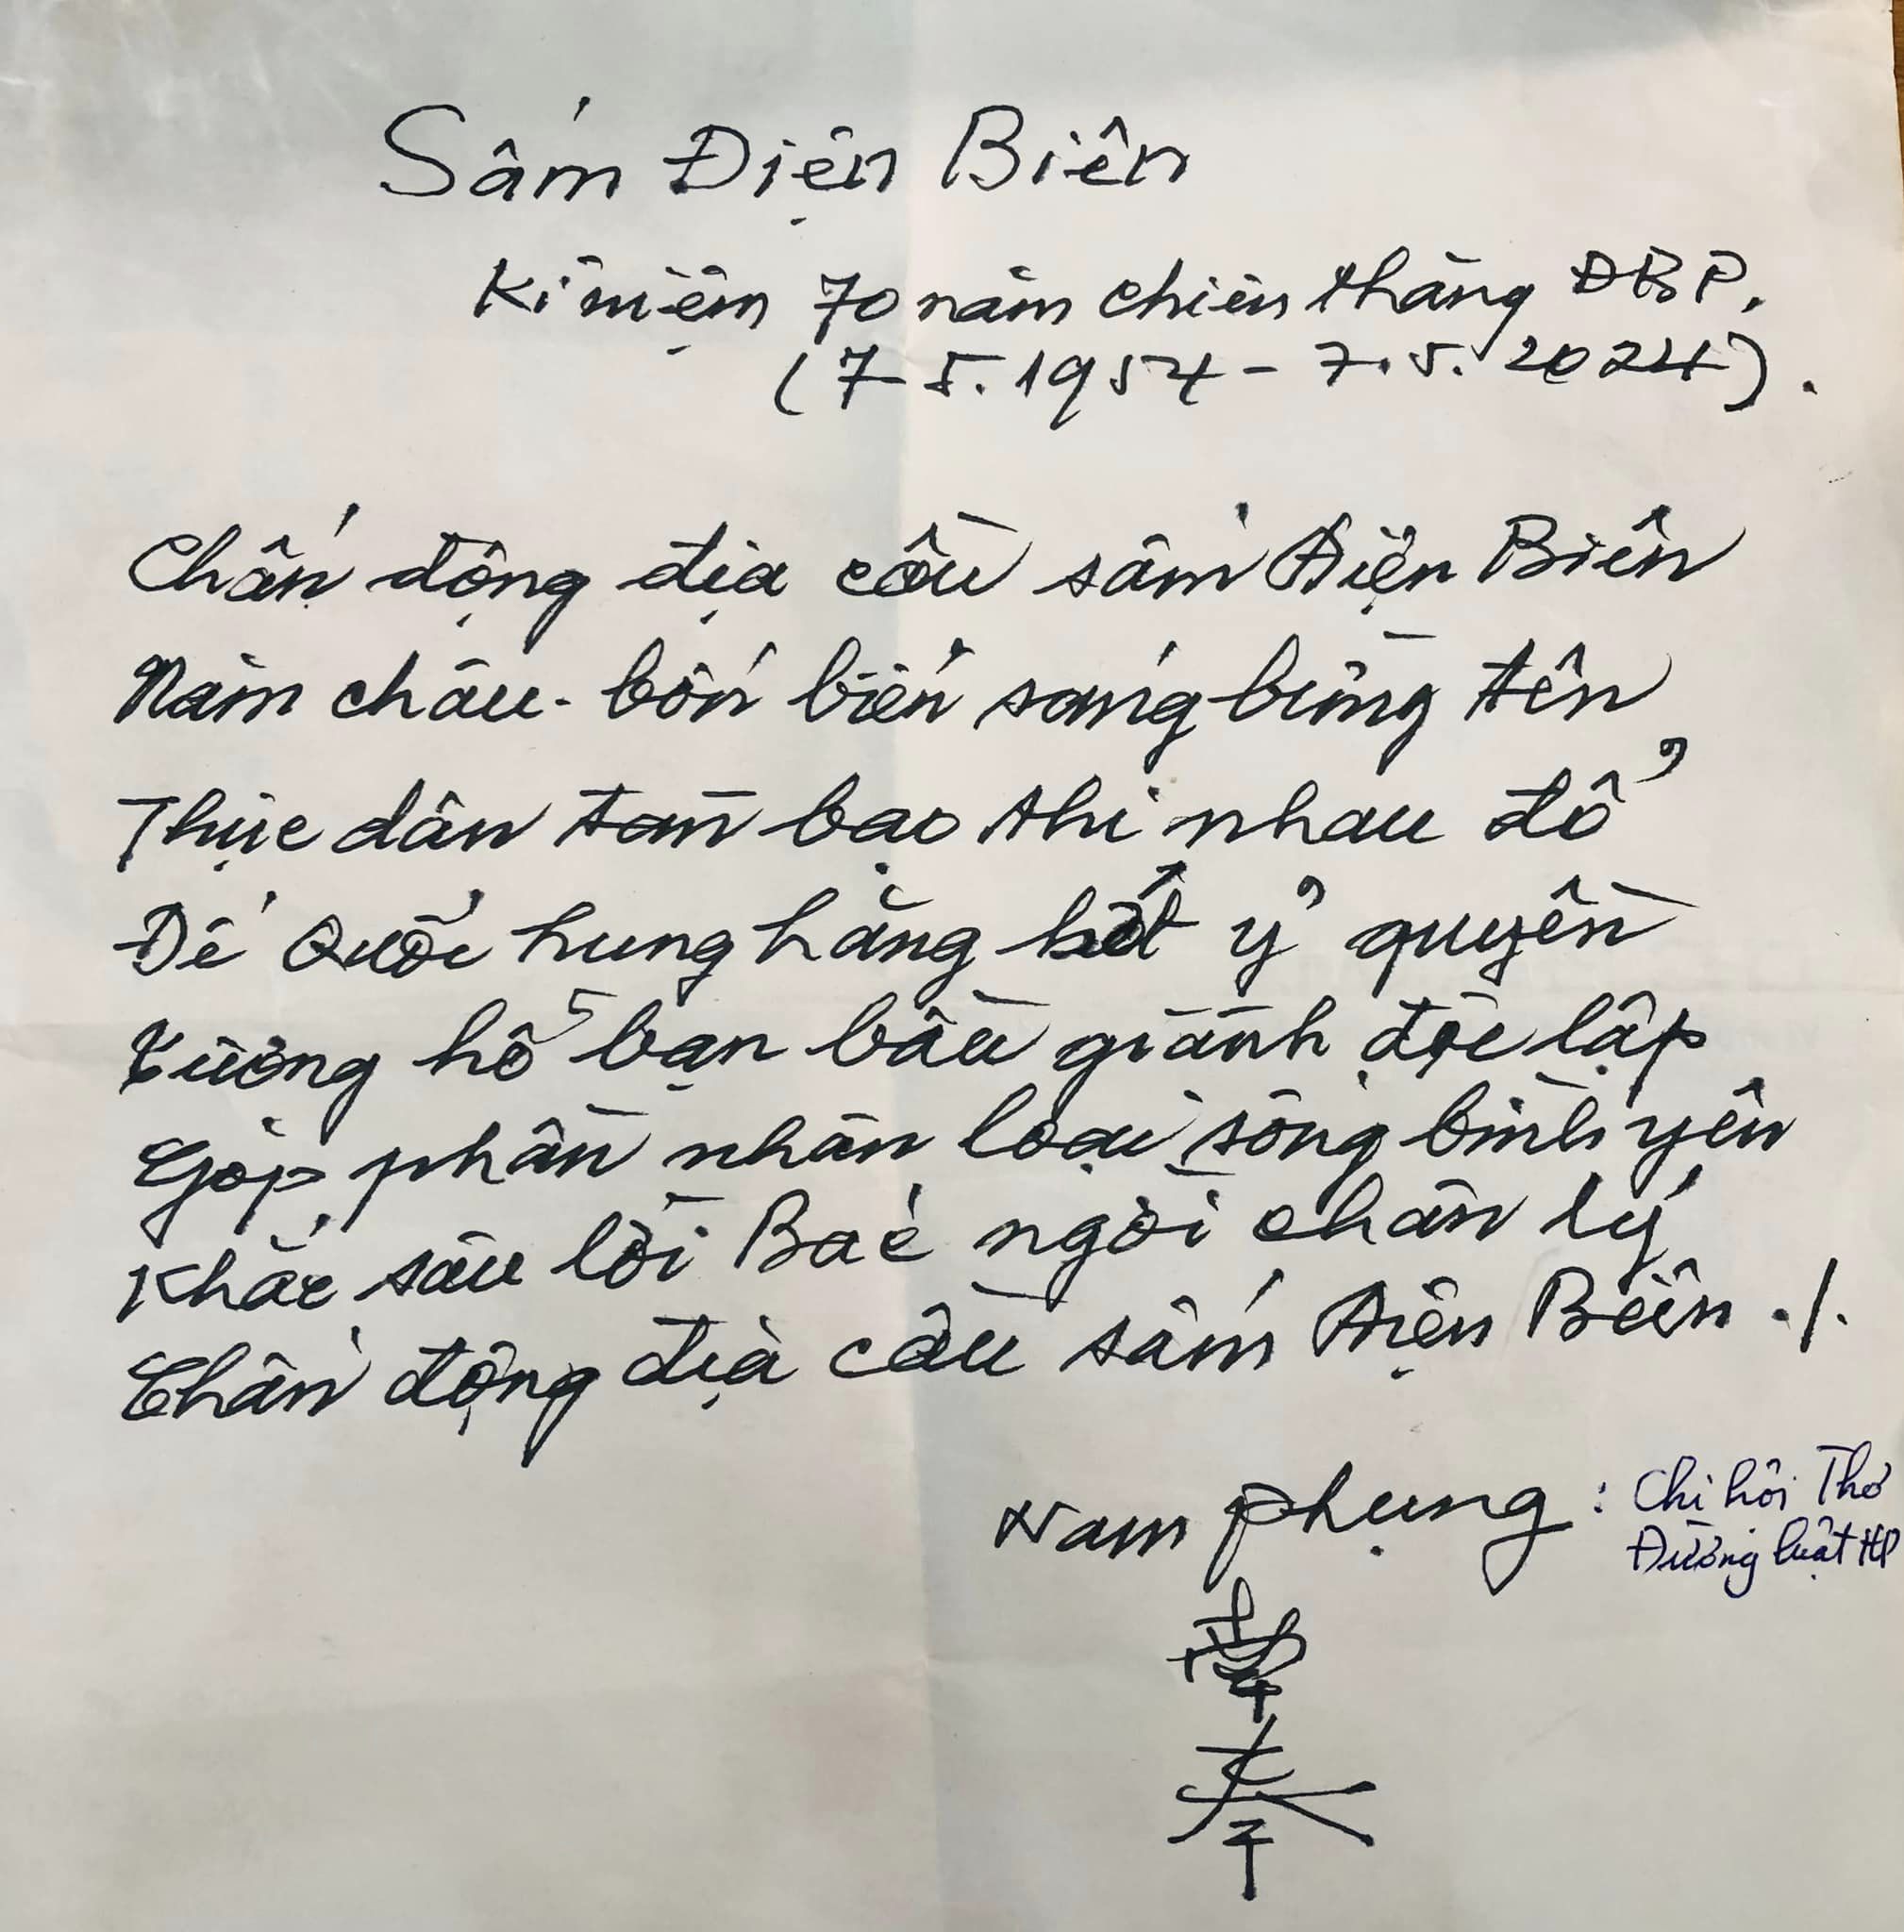 Sấm Điện Biên
Kỉ niệm 70 năm chiến thắng ĐBP.
(7-5.1954 - 7.5.2024).
Chấn động địa cầu sấm Điện Biên
Năm châu - bốn biển sáng bừng tên
Thực dân tàn bạo thi nhau đổ
Đế Quốc hung hăng hết ỷ quyền
Tương hỗ bạn bầu giành độc lập
Góp phần nhân loại sống bình yên
Khắc sâu lời Bác ngời chân lý
Chấn động địa cầu sấm Điện Biên ./.
Nam Phụng : Chi hội Thơ
Đường luật HP
南
奉